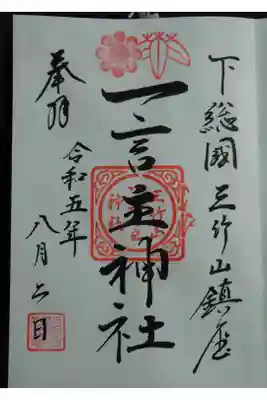 下総國三竹山鎮座
一言主神社
奉拝
令和五年
八月六日